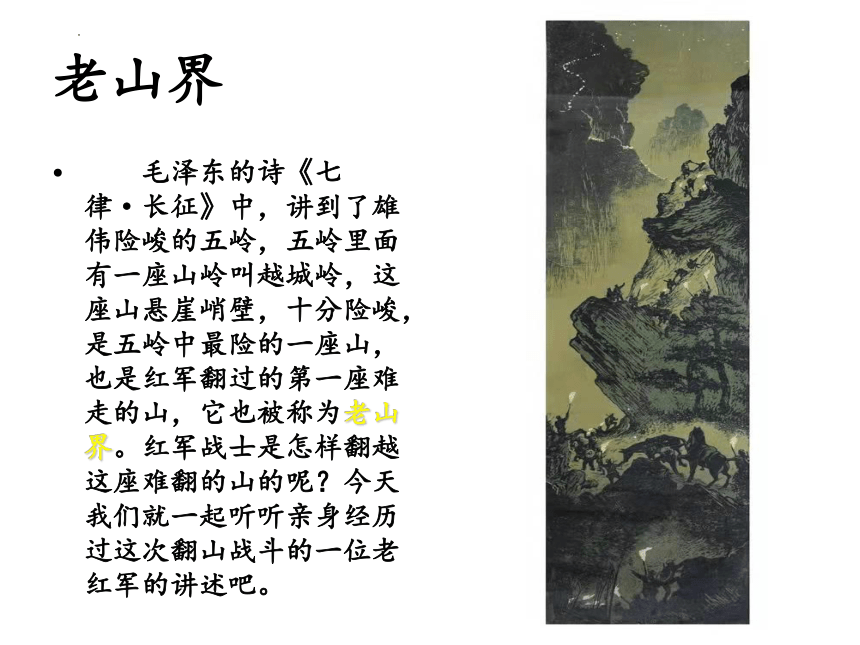 老山界
• 毛泽东的诗《七
律·长征》中，讲到了雄
伟险峻的五岭，五岭里面
有一座山岭叫越城岭，这
座山悬崖峭壁，十分险峻，
是五岭中最险的一座山，
也是红军翻过的第一座难
走的山，它也被称为老山
界。红军战士是怎样翻越
这座难翻的山的呢？今天
我们就一起听听亲身经历
过这次翻山战斗的一位老
红军的讲述吧。